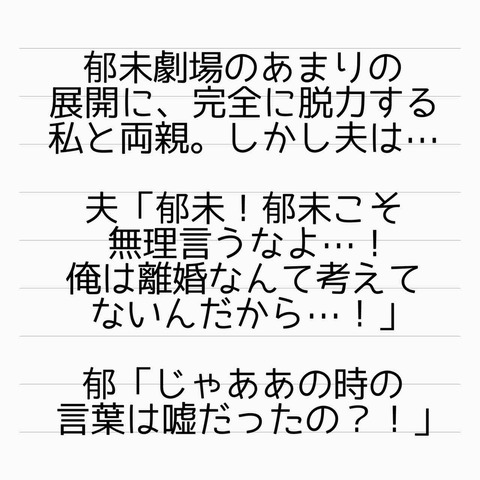 郁未劇場のあまりの
展開に、完全に脱力する
私と両親。しかし夫は…
夫「郁未！郁未こそ
無理言うなよ…！
俺は離婚なんて考えて
ないんだから…！」
郁「じゃああの時の
言葉は嘘だったの？！」